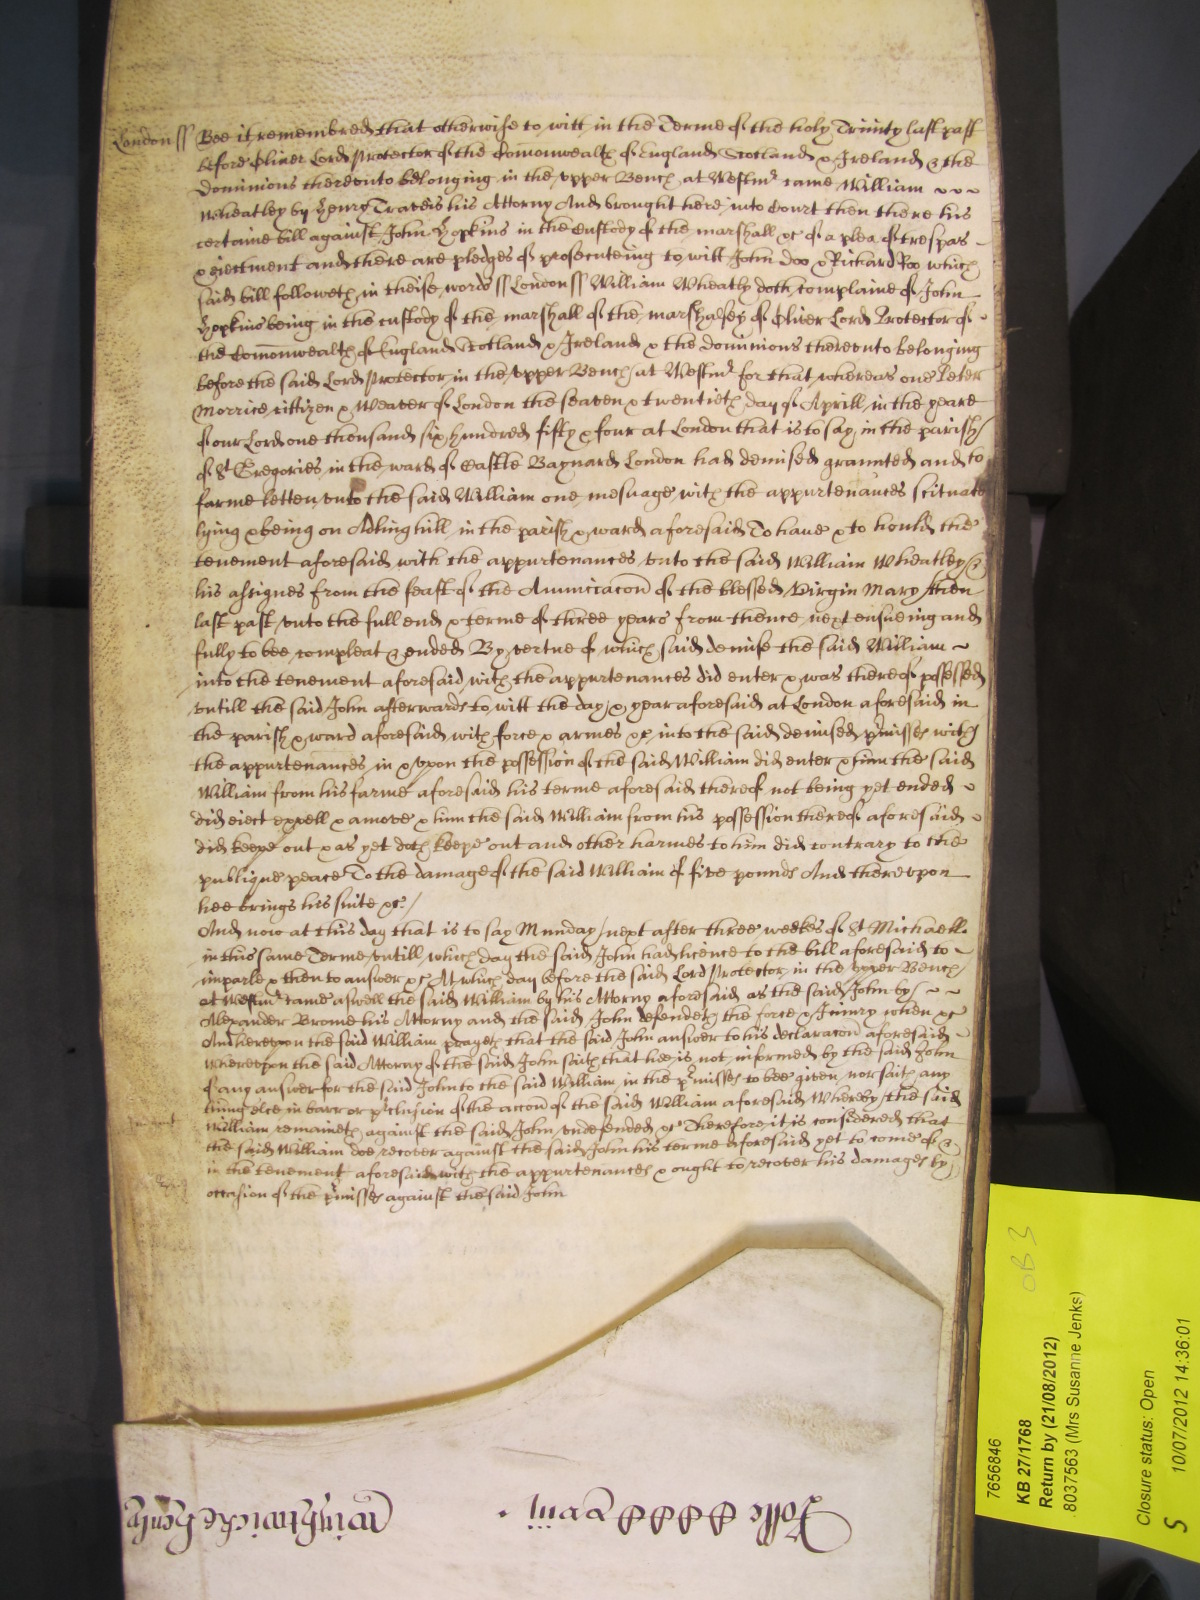 London ss Bee it remembred that otherwise to witt in the Terme of the holy Trinity last past
before Oliver Lord Protector of the Comonwealth of England Scotland & Ireland & the
Dominions thereunto belonging in the upper Bench at Westmr came William
Wheatley by Henry Travers his Attorny And brought here into Court then there his
certaine bill against John Hopkins in the Custody of the marshall &c of a plea of trespas
& eiectment and there are pledges of prosecuteing to witt John Doo & Richard Roo which
said bill followeth in theise words ss London ss William Wheatly doth complaine of John
Hopkins being in the custody of the marshall of the marshalsey of Oliver Lord Protector of
the Comonwealth of England Scotland & Ireland & the dominions thereunto belonging
before the said Lord Protector in the upper Bench at Westmr for that whereas one Peter
Morrice cittizen & Weaver of London the seaven & twentieth day of Aprill in the yeare
of our Lord one thousand six hundred fifty & four at London that is to say in the parish
of St Gregories in the ward of Castle Baynard London had demised grannted and to
farme letten unto the said William one mesuage with the appurtenances scituate
lying & being on Adling hill in the parish & ward aforesaid To have & to hould the
tenement aforesaid with the appurtenances unto the said William Wheatley &
his assignes from the feast of the Anunciacon of the blessed Virgin Mary then
last past unto the full end & terme of three years from thence next ensueing and
fully to bee compleat & ended By vertue of which said demise the said William
into the tenement aforesaid with the appurtenances did enter & was thereof possessed
untill the said John afterwards to witt the day & year aforesaid at London aforesaid in
the parish & ward aforesaid with force & armes &c into the said demised pmisses with
the appurtenances in & upon the possession of the said William did enter & him the said
William from his farme aforesaid his terme aforesaid thereof not being yet ended
did eiect expell & amove & him the said William from his possession thereof aforesaid
did keepe out & as yet doth keepe out and other harmes to him did contrary to the
publique peace To the damage of the said William of five pounds And thereupon
hee brings his suite &c
And now at this day that is to say Munday next after three weekes of St Michaell
in this same Terme untill which day the said John had licence to the bill aforesaid to
imparle & then to answer &c At which day before the said Lord Protector in the upper Bench
at Westmr came aswell the said William by his Attorny aforesaid as the said John by
Alexander Brome his Attorny and the said John defendeth the force & Iniury when &c
And hereupon the said William prayeth that the said John answer to his declaracon aforesaid
Whereupon the said Attorny of the said John saith that hee is not informed by the said John
of any answer for the said John to the said William in the pmisses to bee given nor saith any
thing else in barr or pclusion of the accon of the said William aforesaid Whereby the said
William remaineth against the said John undefended &c Therefore it is considered that
the said William doe recover against the said John his terme aforesaid yet to come of &
in the tenement aforesaid with the appurtenances & ought to recover his damages by
occasion of the pmisses against the said John
Rolle
Wightwicke Henly
7656846
KB 27/1768
Return by (21/08/2012)
8037563 (Mrs Susanne Jenks)
Closure status: Open
10/07/2012 14:36:01
S
OB 3